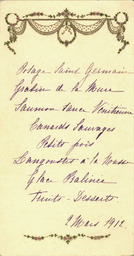 Potage Saint Germain
Saumon Sauce Vénitienne
Canards Sauvages
Petits pois
Langouster à la Russe
Glace
Fruits - Desserts
9 Mars 1912